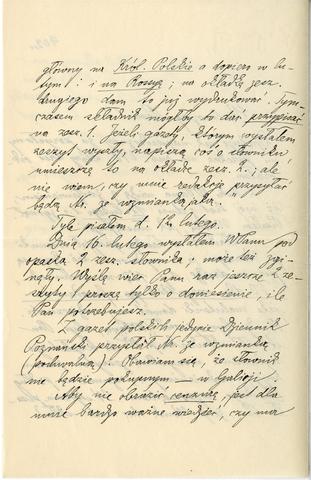 główny na Król. Polskie a dopiero w lu-
tym! i na Rossyę; na okładkę zesz.
drugiego dam to już wydrukować. Tym-
czasem składnik mógłby to dać przypisać
na zesz. 1. Jeżeli gazety, którym wysłałem
zeszyt wyszły, napiszą coś o słowniku
umieszczę to na okładce zesz. 2.; ale
nie wiem, czy mnie redakcje przysyłać
będą Nr. ze wzmianką jaką.
Tyle pisałem d. 12 lutego.
Dnia 16. lutego wysłałem WPanu pod
opaską 2 zesz. słownika; może też zgi-
nęły. Wyślę więc Panu raz jeszcze 2 ze-
szyty i proszę tylko o doniesienie, ile
Pan potrzebujesz.
Z gazet polskich jedynie Dziennik
Poznański przysłał Nr. ze wzmianką
(pochwalną). Obawiam się, że słownik
nie będzie pokupnym — w Galicji.
Aby nie obrazić cenzurę, jest dla
mnie bardzo ważne wiedzieć, czy ma